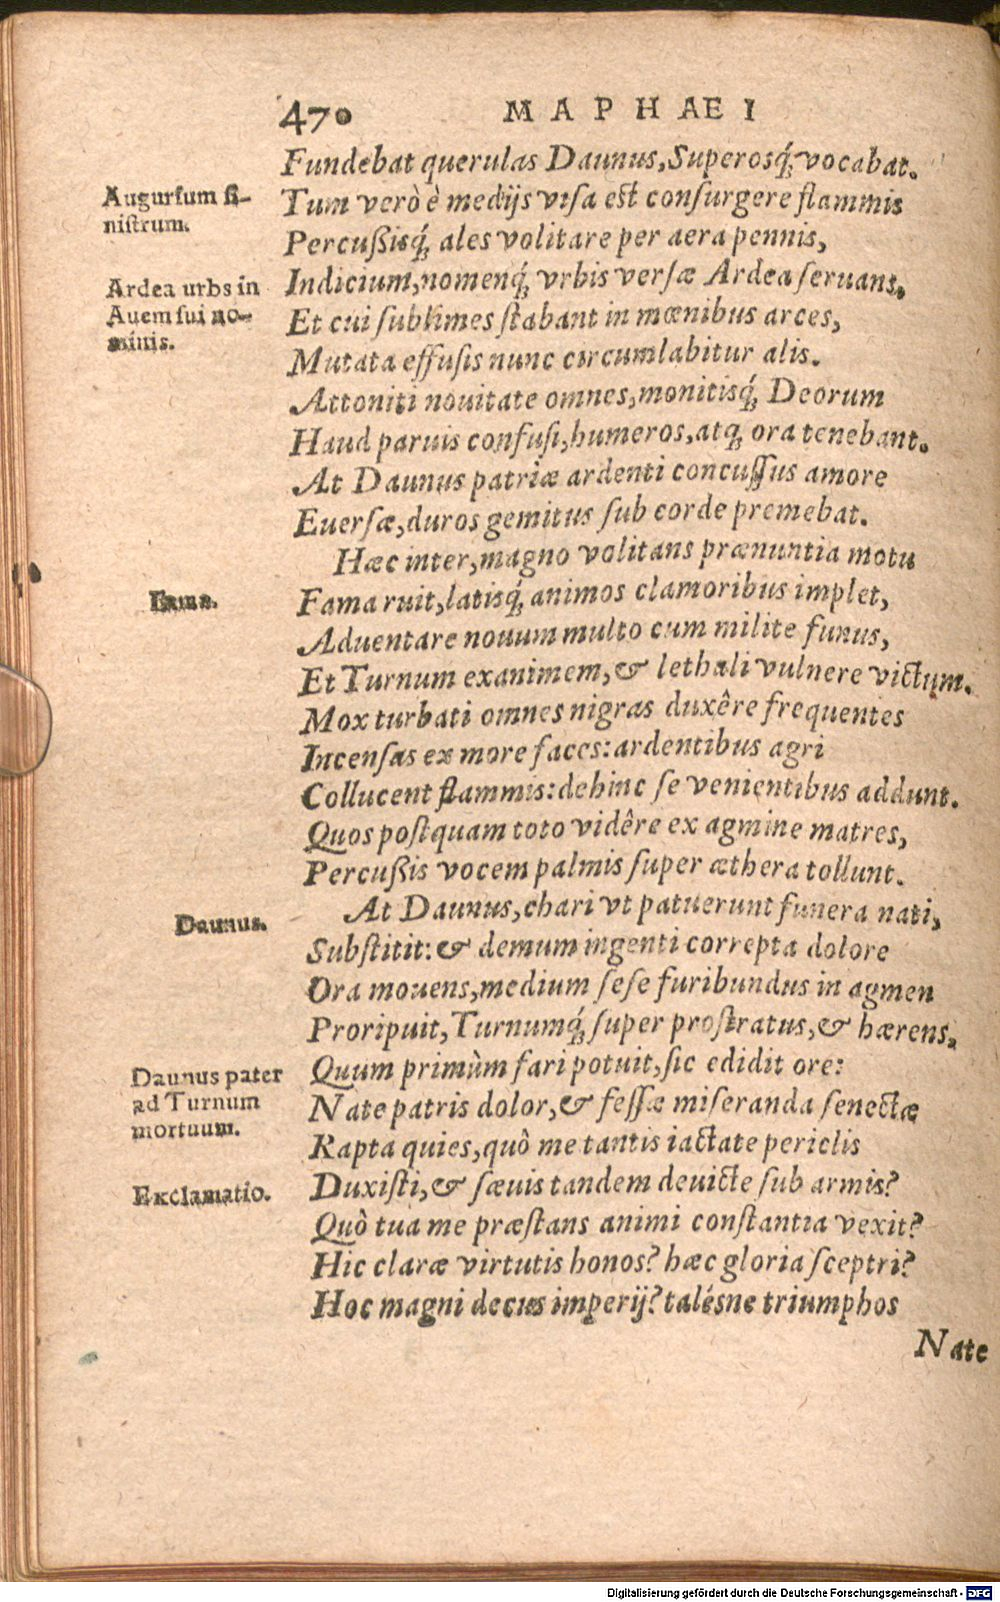 470 MAPHAEI
Fundebat querulas Daunus, Superosq́; vocabat.
Augurium si-
nistrum.
Tum verò è medijs visa est consurgere flammis
Percußisq́; ales volitare per aera pennis,
Ardea urbs in
Auem sui no-
minis.
Indicium, nomenq́; vrbis versæ Ardea seruans.
Et cui sublimes stabant in mœnibus arces,
Mutata effusis nunc circumlabitur alis.
Attoniti nouitate omnes, monitisq́; Deorum
Haud paruis confusi, humeros, atq; ora tenebant.
At Daunus patriæ ardenti concussus amore
Euersæ, duros gemitus sub corde premebat.
Hæc inter, magno volitans prænuntia motu
Fama.
Fama ruit, latisq́; animos clamoribus implet,
Aduentare nouum multo cum milite funus,
Et Turnum exanimem, & lethali vulnere victum.
Mox turbati omnes nigras duxêre frequentes
Incensas ex more faces: ardentibus agri
Collucent flammis: dehinc se venientibus addunt.
Quos postquam toto vidêre ex agmine matres,
Percußis vocem palmis super æthera tollunt.
Daunus.
At Daunus, chari vt patuerunt funera nati,
Substitit: & demum ingenti correpta dolore
Ora mouens, medium sese furibundus in agmen
Proripuit, Turnumq́; super prostratus, & hærens,
Daunus pater
ad Turnum
mortuum.
Quum primùm fari potuit, sic edidit ore:
Nate patris dolor, & fessæ miseranda senectæ
Rapta quies, quò me tantis iactate periclis
Exclamatio.
Duxisti, & sæuis tandem deuicte sub armis?
Quò tua me præstans animi constantia vexit?
Hic claræ virtutis honos? hæc gloria sceptri?
Hoc magni decus imperij? talésne triumphos
Nate
Digitalisierung gefördert durch die Deutsche Forschungsgemeinschaft - DFG